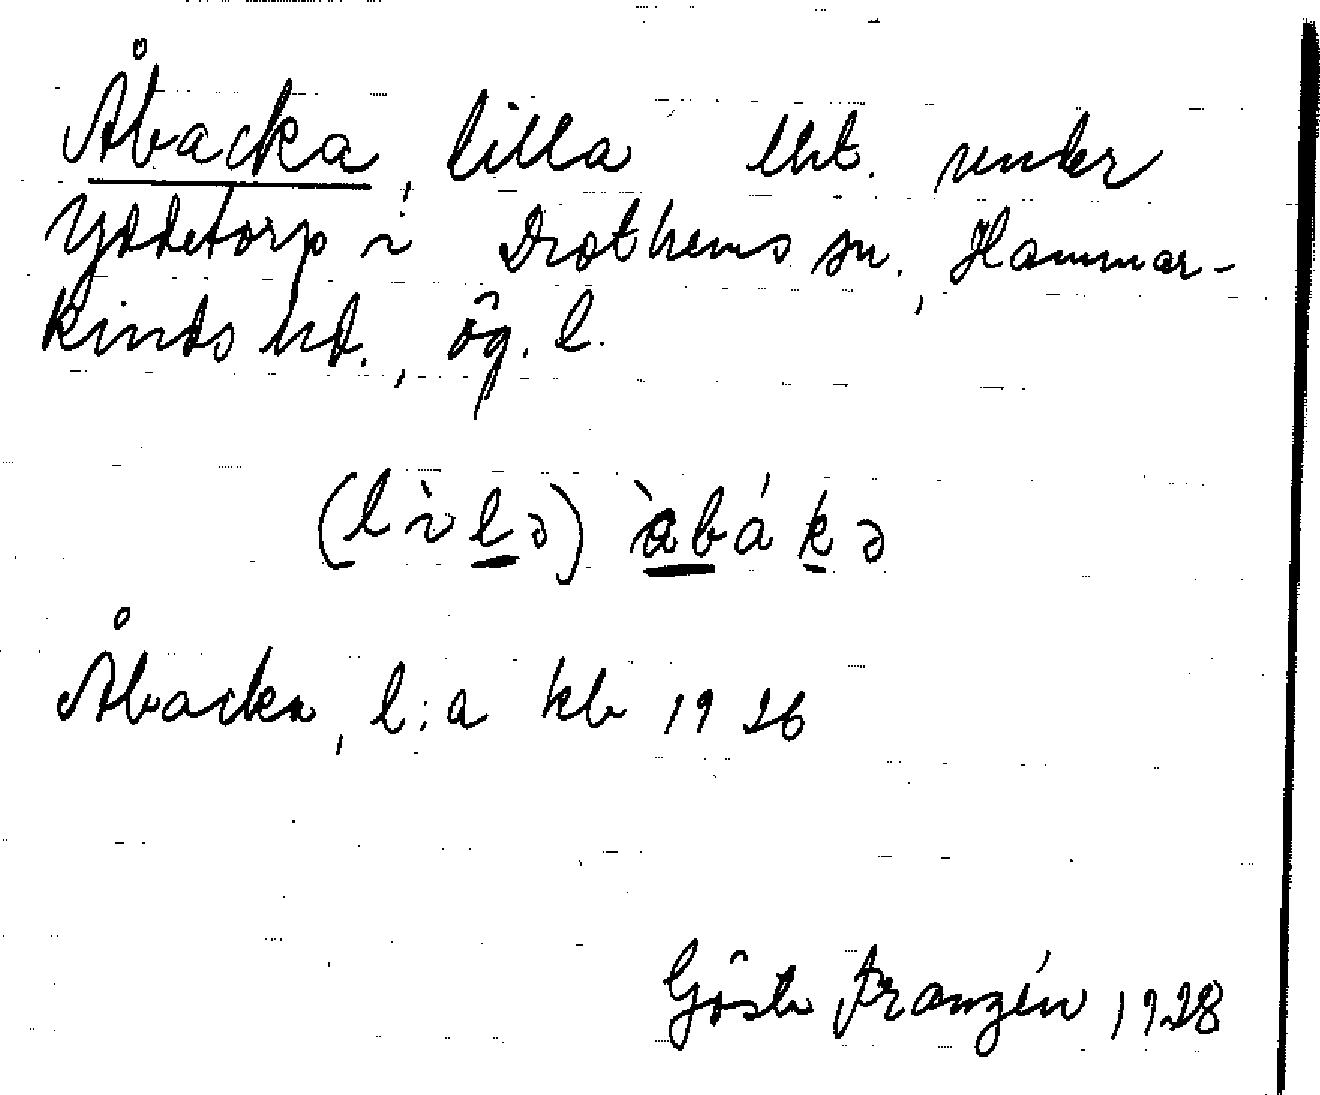 Åbacka, lilla lht. under
Yddetorp i Drothems sn., Hammar-
kinds hd., Ög. l.
(lìlə) àbákə
Åbacka, l:a kb 1926
Gösta Franzén 1928